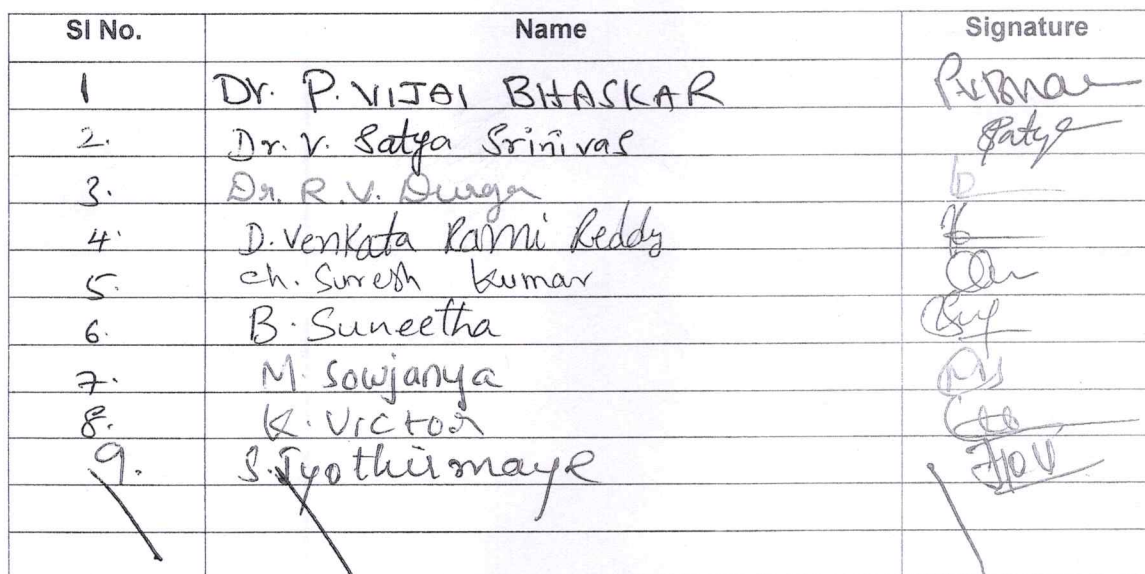 Sl No. Name Signature
1 Dr. P. VIJAI BHASKAR
2. Dr. V. Satya Srinivas Satya
3. Dr. R. V. Durga
4. D. Venkata Rami Reddy
5. Ch. Suresh Kumar
6. B. Suneetha
7. M. Sowjanya
8. K. Victor
9. S. Jyothirmaye